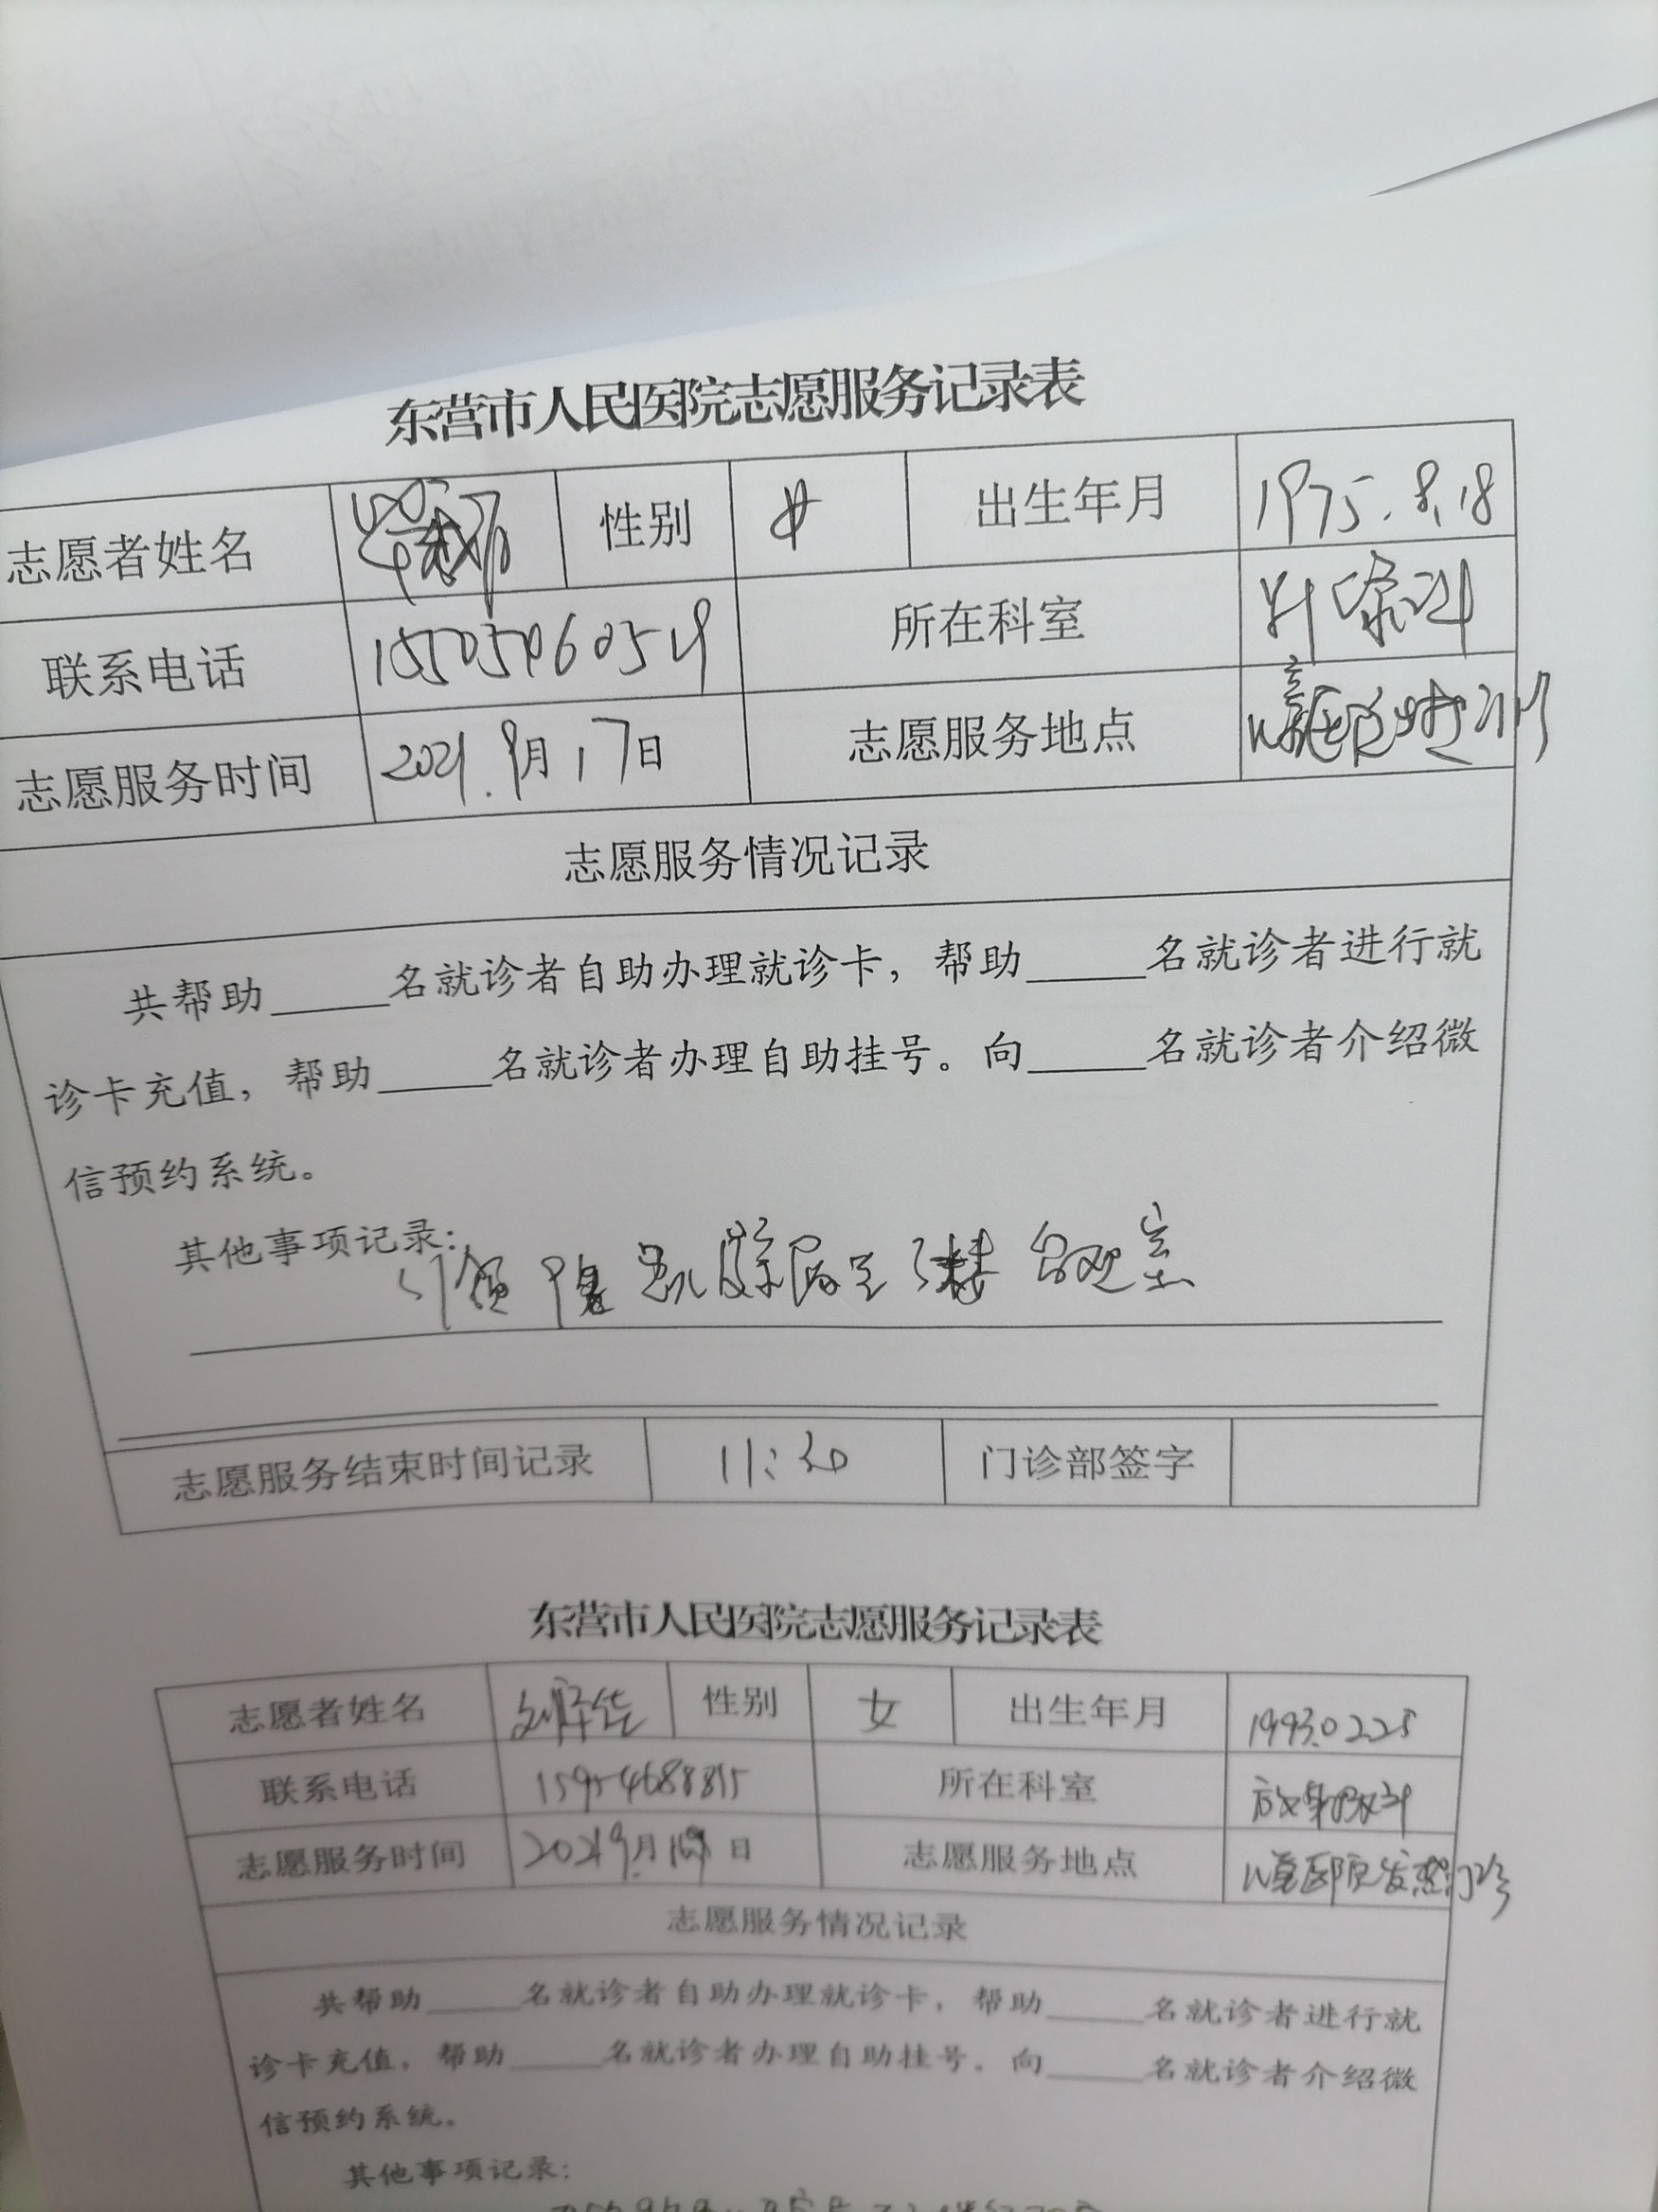 东营市人民医院志愿服务记录表
志愿者姓名 性别 女 出生年月 1975.8.18
联系电话 所在科室
志愿服务时间 2021.9月17日 志愿服务地点
志愿服务情况记录
共帮助_____名就诊者自助办理就诊卡，帮助_____名就诊者进行就
诊卡充值，帮助_____名就诊者办理自助挂号。向_____名就诊者介绍微
信预约系统。
其他事项记录：
引领
志愿服务结束时间记录 11:30 门诊部签字
东营市人民医院志愿服务记录表
志愿者姓名 性别 女 出生年月 1993.02.25
联系电话 15954688815 所在科室 放射科
志愿服务时间 2021 9月 日 志愿服务地点 发热门诊
志愿服务情况记录
共帮助_____名就诊者自助办理就诊卡，帮助_____名就诊者进行就
诊卡充值，帮助_____名就诊者办理自助挂号。向_____名就诊者介绍微
信预约系统。
其他事项记录：